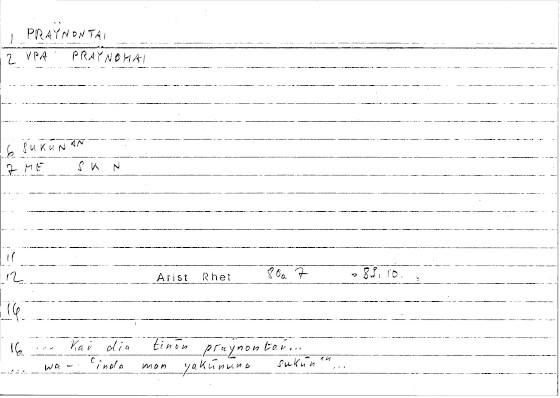 1 PRAŸNONTAI
2 VPA PRAŸNOMAI
6 SUKŪN AN
7 ME S K N
11
12 Arist Rhet 80a 7
14
16 ... Kai dia tinōn praÿnontai...
... wa- ʿinda man yakūnūna sukūn an ...